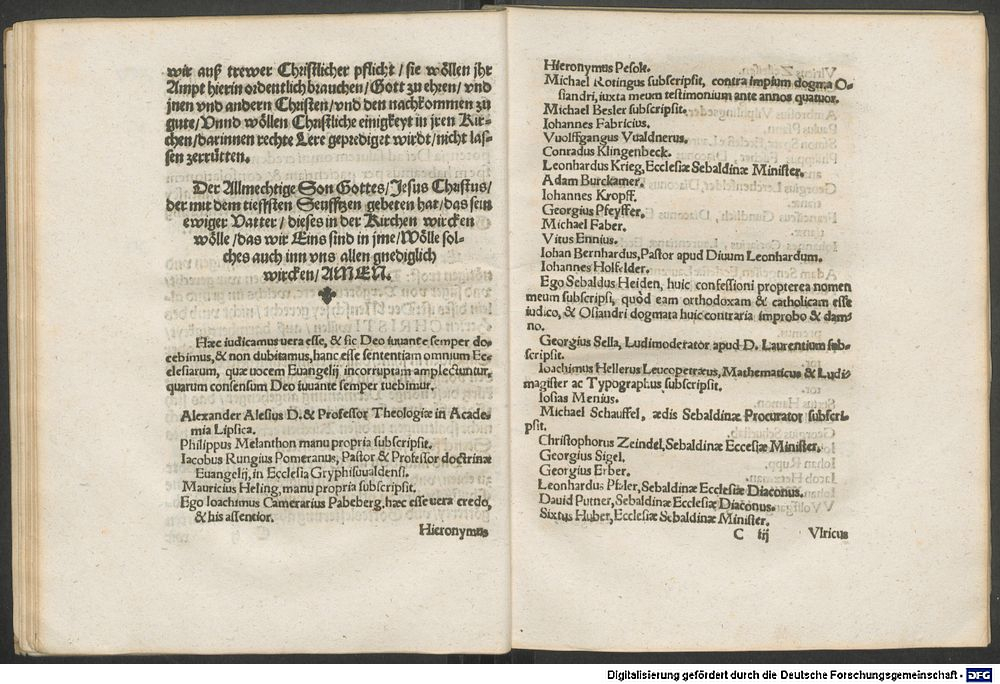 wir auß trewer Christlicher pflicht / sie wöllen jhr
Ampt hierin ordentlich brauchen / Gott zu ehren / vnd
jnen vnd andern Christen / vnd den nachkommen zu
gute / Vnnd wöllen Christliche einigkeyt in jren Kir-
chen / darinnen rechte Lere geprediget wirdt / nicht las-
sen zerrütten.
Der Allmechtige Son Gottes / Jesus Christus /
der mit dem tieffsten Seufftzen gebeten hat / das sein
ewiger Vatter / dieses in der Kirchen wircken
wölle / das wir Eins sind in jme / Wölle sol-
ches auch inn vns allen gnediglich
wircken / AMEN.
Hæc iudicamus uera esse, & sic Deo iuuante semper do-
cebimus, & non dubitamus, hanc esse sententiam omnium Ec-
clesiarum, quæ uocem Euangelij incorruptam amplectuntur,
quarum consensum Deo iuuante semper tuebimur.
Alexander Alesius D. & Professor Theologiæ in Acade-
mia Lipsica.
Philippus Melanthon manu propria subscripsit.
Iacobus Rungius Pomeranus, Pastor & Professor doctrinæ
Euangelij, in Ecclesia Gryphisuualdensi.
Mauricius Heling, manu propria subscripsit.
Ego Ioachimus Camerarius Pabeberg, hæc esse uera credo,
& his assentior.
Hieronymus
Hieronymus Pesolt.
Michael Rotingus subscripsit, contra impium dogma O-
siandri, iuxta meum testimonium ante annos quatuor.
Michael Besler subscripsit.
Iohannes Fabricius.
Vuolffgangus Vualdnerus.
Conradus Klingenbeck.
Leonhardus Krieg, Ecclesiæ Sebaldinæ Minister.
Adam Burckamer.
Iohannes Kropff.
Georgius Pfeyffer.
Michael Faber.
Vitus Ennius.
Iohan Bernhardus, Pastor apud Diuum Leonhardum.
Iohannes Holfelder.
Ego Sebaldus Heiden, huic confessioni propterea nomen
meum subscripsi, quòd eam orthodoxam & catholicam esse
iudico, & Osiandri dogmata huic contraria improbo & dam-
no.
Georgius Sella, Ludimoderator apud D. Laurentium sub-
scripsit.
Ioachimus Hellerus Leucopetræus, Mathematicus & Ludi-
magister ac Typographus subscripsit.
Iosias Menius.
Michael Schauffel, ædis Sebaldinæ Procurator subscri-
psit.
Christophorus Zeindel, Sebaldinæ Eccesiæ Minister.
Georgius Sigel.
Georgius Erber.
Leonhardus Pfaler, Sebaldinæ Ecclesiæ Diaconus.
Dauid Putner, Sebaldinæ Ecclesiæ Diaconus.
Sixtus Huber, Ecclesiæ Sebaldinæ Minister.
C iij Vlricus
Digitalisierung gefördert durch die Deutsche Forschungsgemeinschaft - DFG